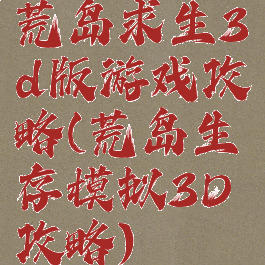 荒岛求生3
d版游戏攻
略(荒岛生
存模拟3D
攻略)